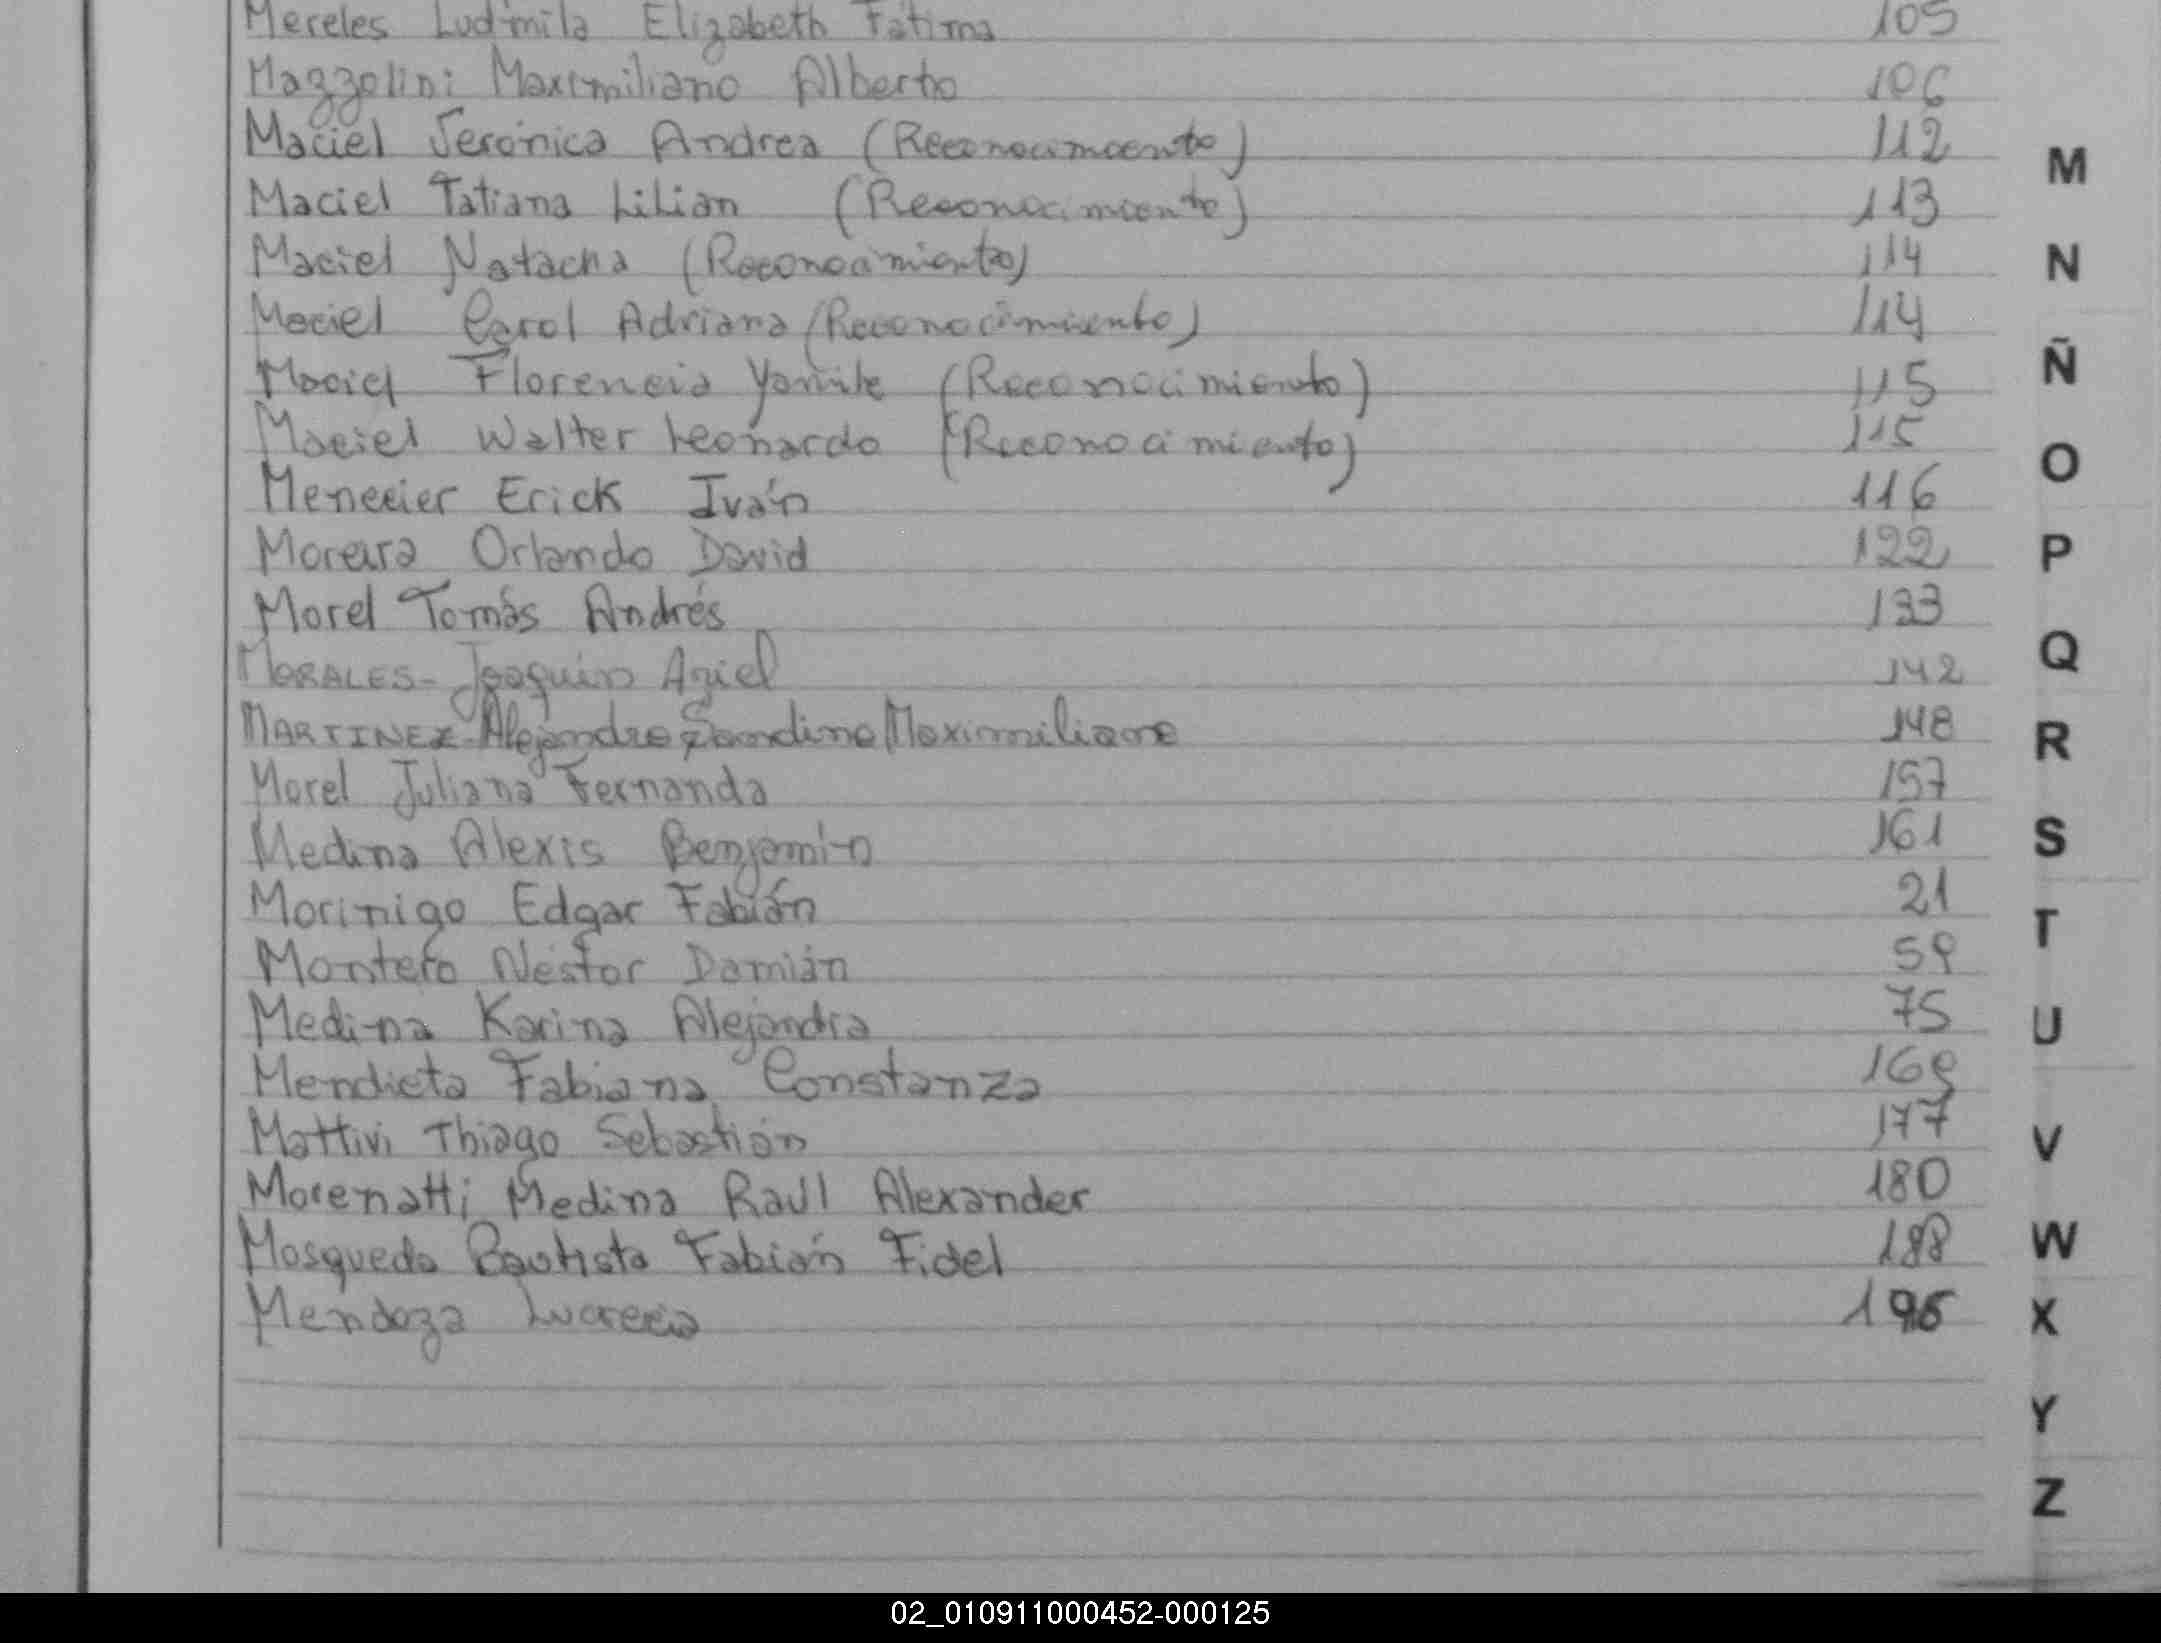 Mereles Ludmila Elizabeth Fátima 105
Mazzolini Maximiliano Alberto 106
Maciel Verónica Andrea (Reconocimiento) 112
Maciel Tatiana Lilian (Reconocimiento) 113
Maciel Natacha (Reconocimiento) 114
Maciel Carol Adriana (Reconocimiento) 114
Maciel Florencia Yamile (Reconocimiento) 115
Maciel Walter Leonardo (Reconocimiento) 115
Menecier Erick Iván 116
Moreira Orlando David 122
Morel Tomás Andrés 133
MORALES- Joaquín Ariel 142
MARTINEZ- Alejandro Sandino Maximiliano 148
Morel Juliana Fernanda 157
Medina Alexis Benjamín 161
Morinigo Edgar Fabián 21
Montero Néstor Damián 59
Medina Karina Alejandra 75
Mendieta Fabiana Constanza 169
Mattivi Thiago Sebastián 177
Morenatti Medina Raul Alexander 180
Mosqueda Bautista Fabián Fidel 188
Mendoza Lucrecia
M
N
Ñ
O
P
Q
R
S
T
U
V
W
X
Y
Z
02_010911000452-000125